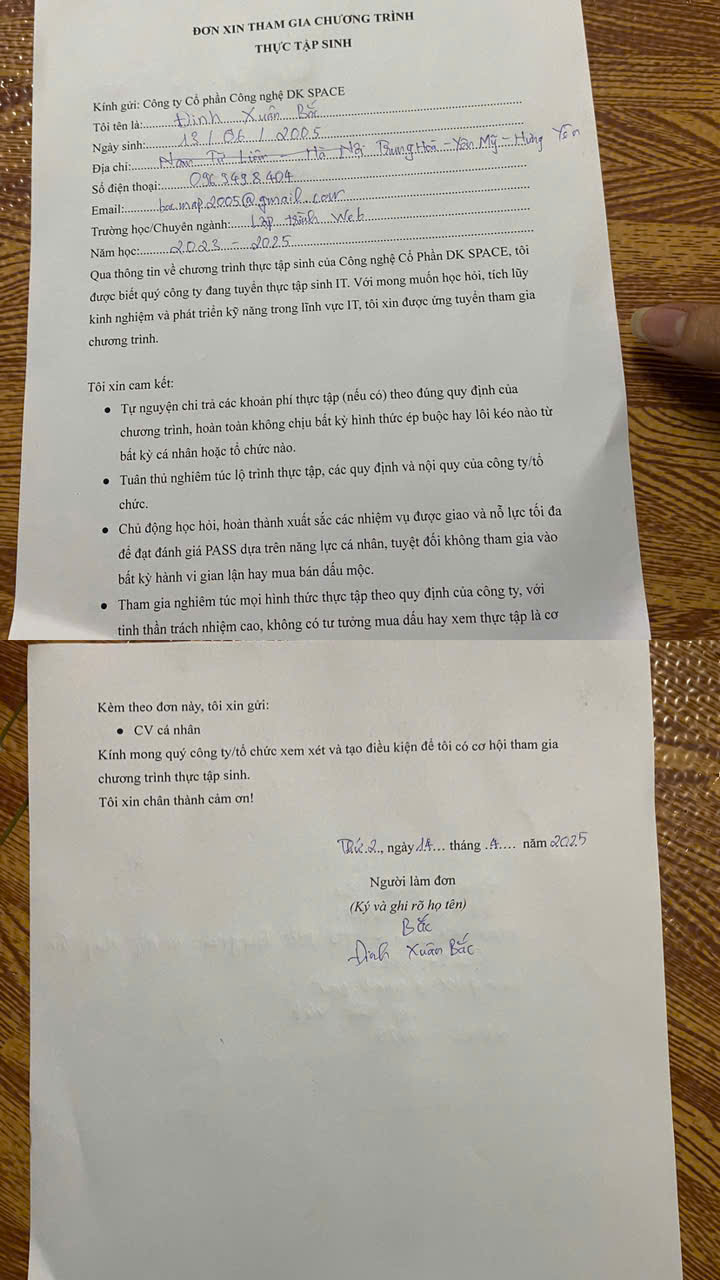 ĐƠN XIN THAM GIA CHƯƠNG TRÌNH
THỰC TẬP SINH
Kính gửi: Công ty Cổ phần Công nghệ DK SPACE
Tôi tên là: Đinh Xuân Bắc
Ngày sinh: 13 / 06 / 2005
Địa chỉ: Nam Từ Liêm - Hà Nội Trung Hoà - Yên Mỹ - Hưng Yên
Số điện thoại: 0963498404
Email: bac.map.2005@gmail.com
Trường học/Chuyên ngành: Lập trình Web
Năm học: 2023 - 2025
Qua thông tin về chương trình thực tập sinh của Công nghệ Cổ Phần DK SPACE, tôi
được biết quý công ty đang tuyển thực tập sinh IT. Với mong muốn học hỏi, tích lũy
kinh nghiệm và phát triển kỹ năng trong lĩnh vực IT, tôi xin được ứng tuyển tham gia
chương trình.
Tôi xin cam kết:
• Tự nguyện chi trả các khoản phí thực tập (nếu có) theo đúng quy định của
chương trình, hoàn toàn không chịu bất kỳ hình thức ép buộc hay lôi kéo nào từ
bất kỳ cá nhân hoặc tổ chức nào.
• Tuân thủ nghiêm túc lộ trình thực tập, các quy định và nội quy của công ty/tổ
chức.
• Chủ động học hỏi, hoàn thành xuất sắc các nhiệm vụ được giao và nỗ lực tối đa
để đạt đánh giá PASS dựa trên năng lực cá nhân, tuyệt đối không tham gia vào
bất kỳ hành vi gian lận hay mua bán dấu mộc.
• Tham gia nghiêm túc mọi hình thức thực tập theo quy định của công ty, với
tinh thần trách nhiệm cao, không có tư tưởng mua dấu hay xem thực tập là cơ
Kèm theo đơn này, tôi xin gửi:
• CV cá nhân
Kính mong quý công ty/tổ chức xem xét và tạo điều kiện để tôi có cơ hội tham gia
chương trình thực tập sinh.
Tôi xin chân thành cảm ơn!
Thứ 2, ngày 14 tháng 4 năm 2025
Người làm đơn
(Ký và ghi rõ họ tên)
Bắc
Đinh Xuân Bắc